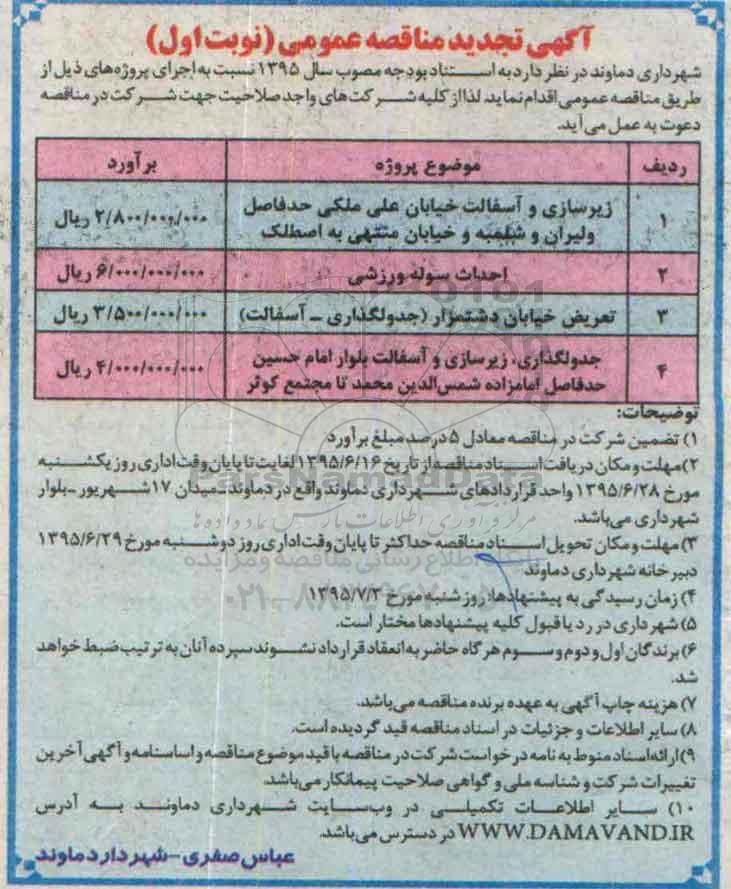 آگهی تجدید مناقصه عمومی (نوبت اول)
شهرداری دماوند در نظر دارد به استناد بودجه مصوب سال ۱۳۹۵ نسبت به اجرای پروژه های ذیل از
طریق مناقصه عمومی اقدام نماید. لذا از کلیه شرکت های واجد صلاحیت جهت شرکت در مناقصه
دعوت به عمل می آید.
ردیف موضوع پروژه برآورد
۱ زیرسازی و آسفالت خیابان علی ملکی حدفاصل ۲/۸۰۰/۰۰۰/۰۰۰ ریال
ولیران و شلمبه و خیابان منتهی به اصطلک
۲ احداث سوله ورزشی ۶/۰۰۰/۰۰۰/۰۰۰ ریال
۳ تعریض خیابان دشتمزار (جدولگذاری – آسفالت) ۳/۵۰۰/۰۰۰/۰۰۰ ریال
۴ جدولگذاری، زیرسازی و آسفالت بلوار امام حسین ۴/۰۰۰/۰۰۰/۰۰۰ ریال
حدفاصل امامزاده شمس‌الدین محمد تا مجتمع کوثر
توضیحات:
۱) تضمین شرکت در مناقصه معادل ۵ درصد مبلغ برآورد
۲)مهلت و مکان دریافت اسناد مناقصه از تاریخ ۱۳۹۵/۶/۱۶ لغایت تا پایان وقت اداری روز یکشنبه
مورخ ۱۳۹۵/۶/۲۸ واحد قراردادهای شهرداری دماوند واقع در دماوند-میدان ۱۷ شهریور-بلوار
شهرداری می‌باشد.
۳) مهلت و مکان تحویل اسناد مناقصه حداکثر تا پایان وقت اداری روز دوشنبه مورخ ۱۳۹۵/۶/۲۹
دبیرخانه شهرداری دماوند
۴) زمان رسیدگی به پیشنهادها: روز شنبه مورخ ۱۳۹۵/۷/۳
۵) شهرداری در رد یا قبول کلیه پیشنهادها مختار است.
۶) برندگان اول و دوم و سوم هرگاه حاضر به انعقاد قرارداد نشوند سپرده آنان به ترتیب ضبط خواهد
شد.
۷) هزینه چاپ آگهی به عهده برنده مناقصه می‌باشد.
۸) سایر اطلاعات و جزئیات در اسناد مناقصه قید گردیده است.
۹)ارائه اسناد منوط به نامه درخواست شرکت در مناقصه با قید موضوع مناقصه و اساسنامه و آگهی آخرین
تغییرات شرکت و شناسه ملی و گواهی صلاحیت پیمانکار می‌باشد.
۱۰) سایر اطلاعات تکمیلی در وب‌سایت شهرداری دماوند به آدرس
WWW.DAMAVAND.IR در دسترس می‌باشد.
عباس صفری-شهردار دماوند
ParsNamadData
مرکز فرآوری اطلاعات پارس نماد داده ها
پایگاه اطلاع رسانی مناقصه و مزایده